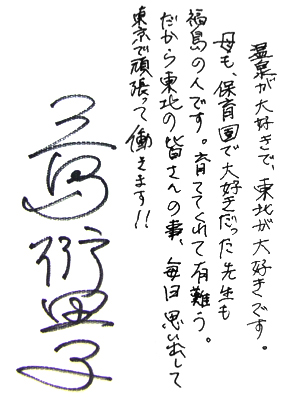 温泉が大好きで、東北が大好きです。
母も、保育園で大好きだった先生も
福島の人です。育ててくれて有難う。
だから東北の皆さんの事、毎日思い出して
東京で頑張って働きます!!